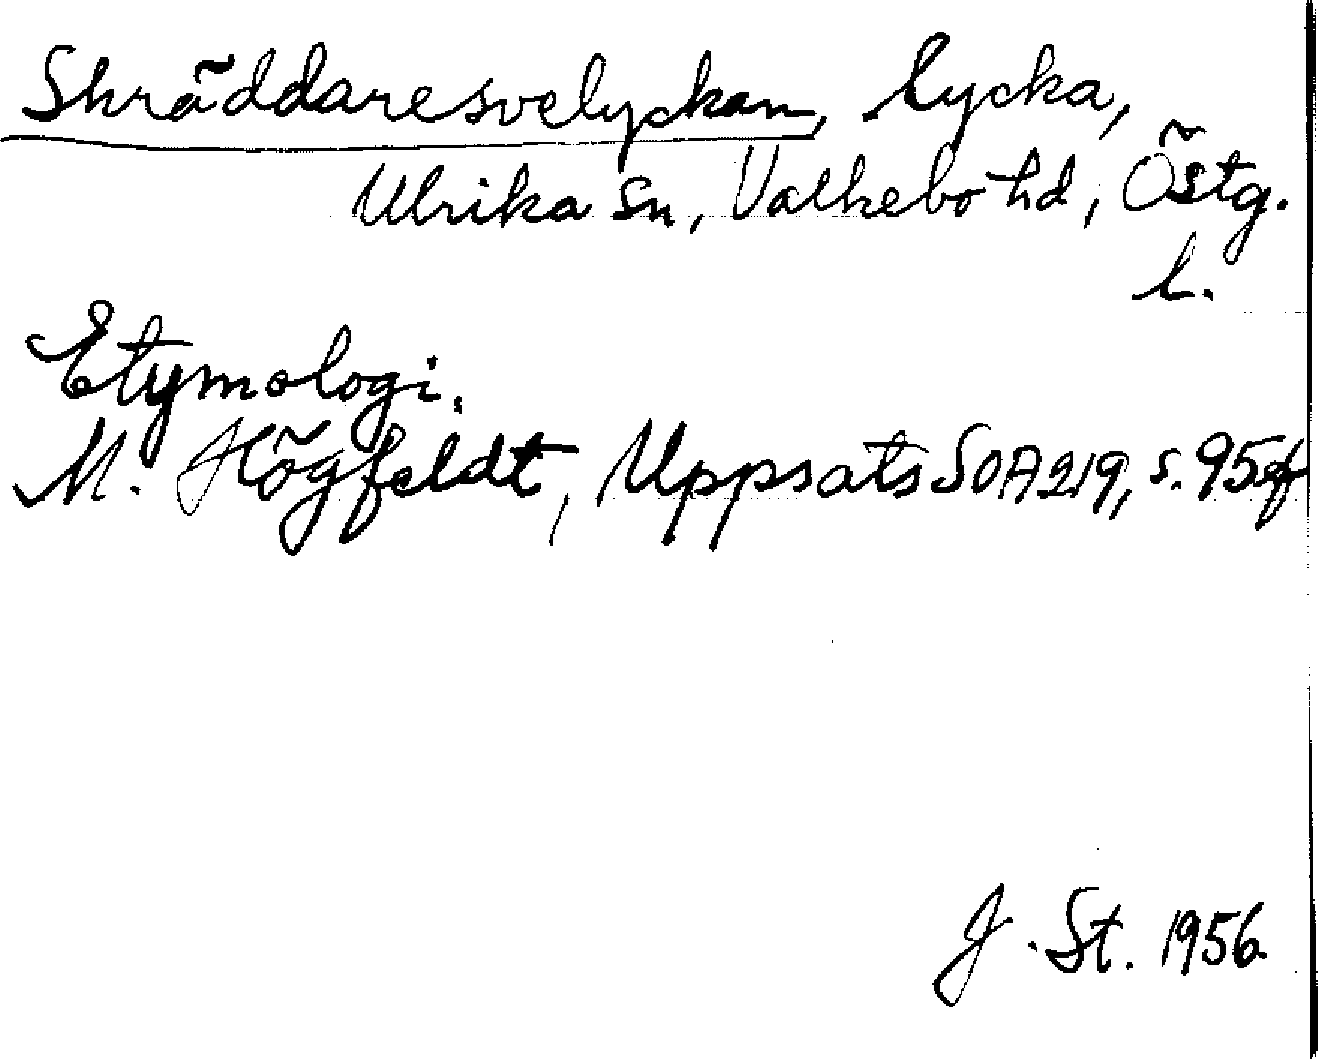 Skräddaresvelyckan, lycka,
Ulrika sn, Valkebo hd, Östg.
l.
Etymologi.
M. Högfeldt, Uppsats SOA 219, s. 95 f
J. St. 1956